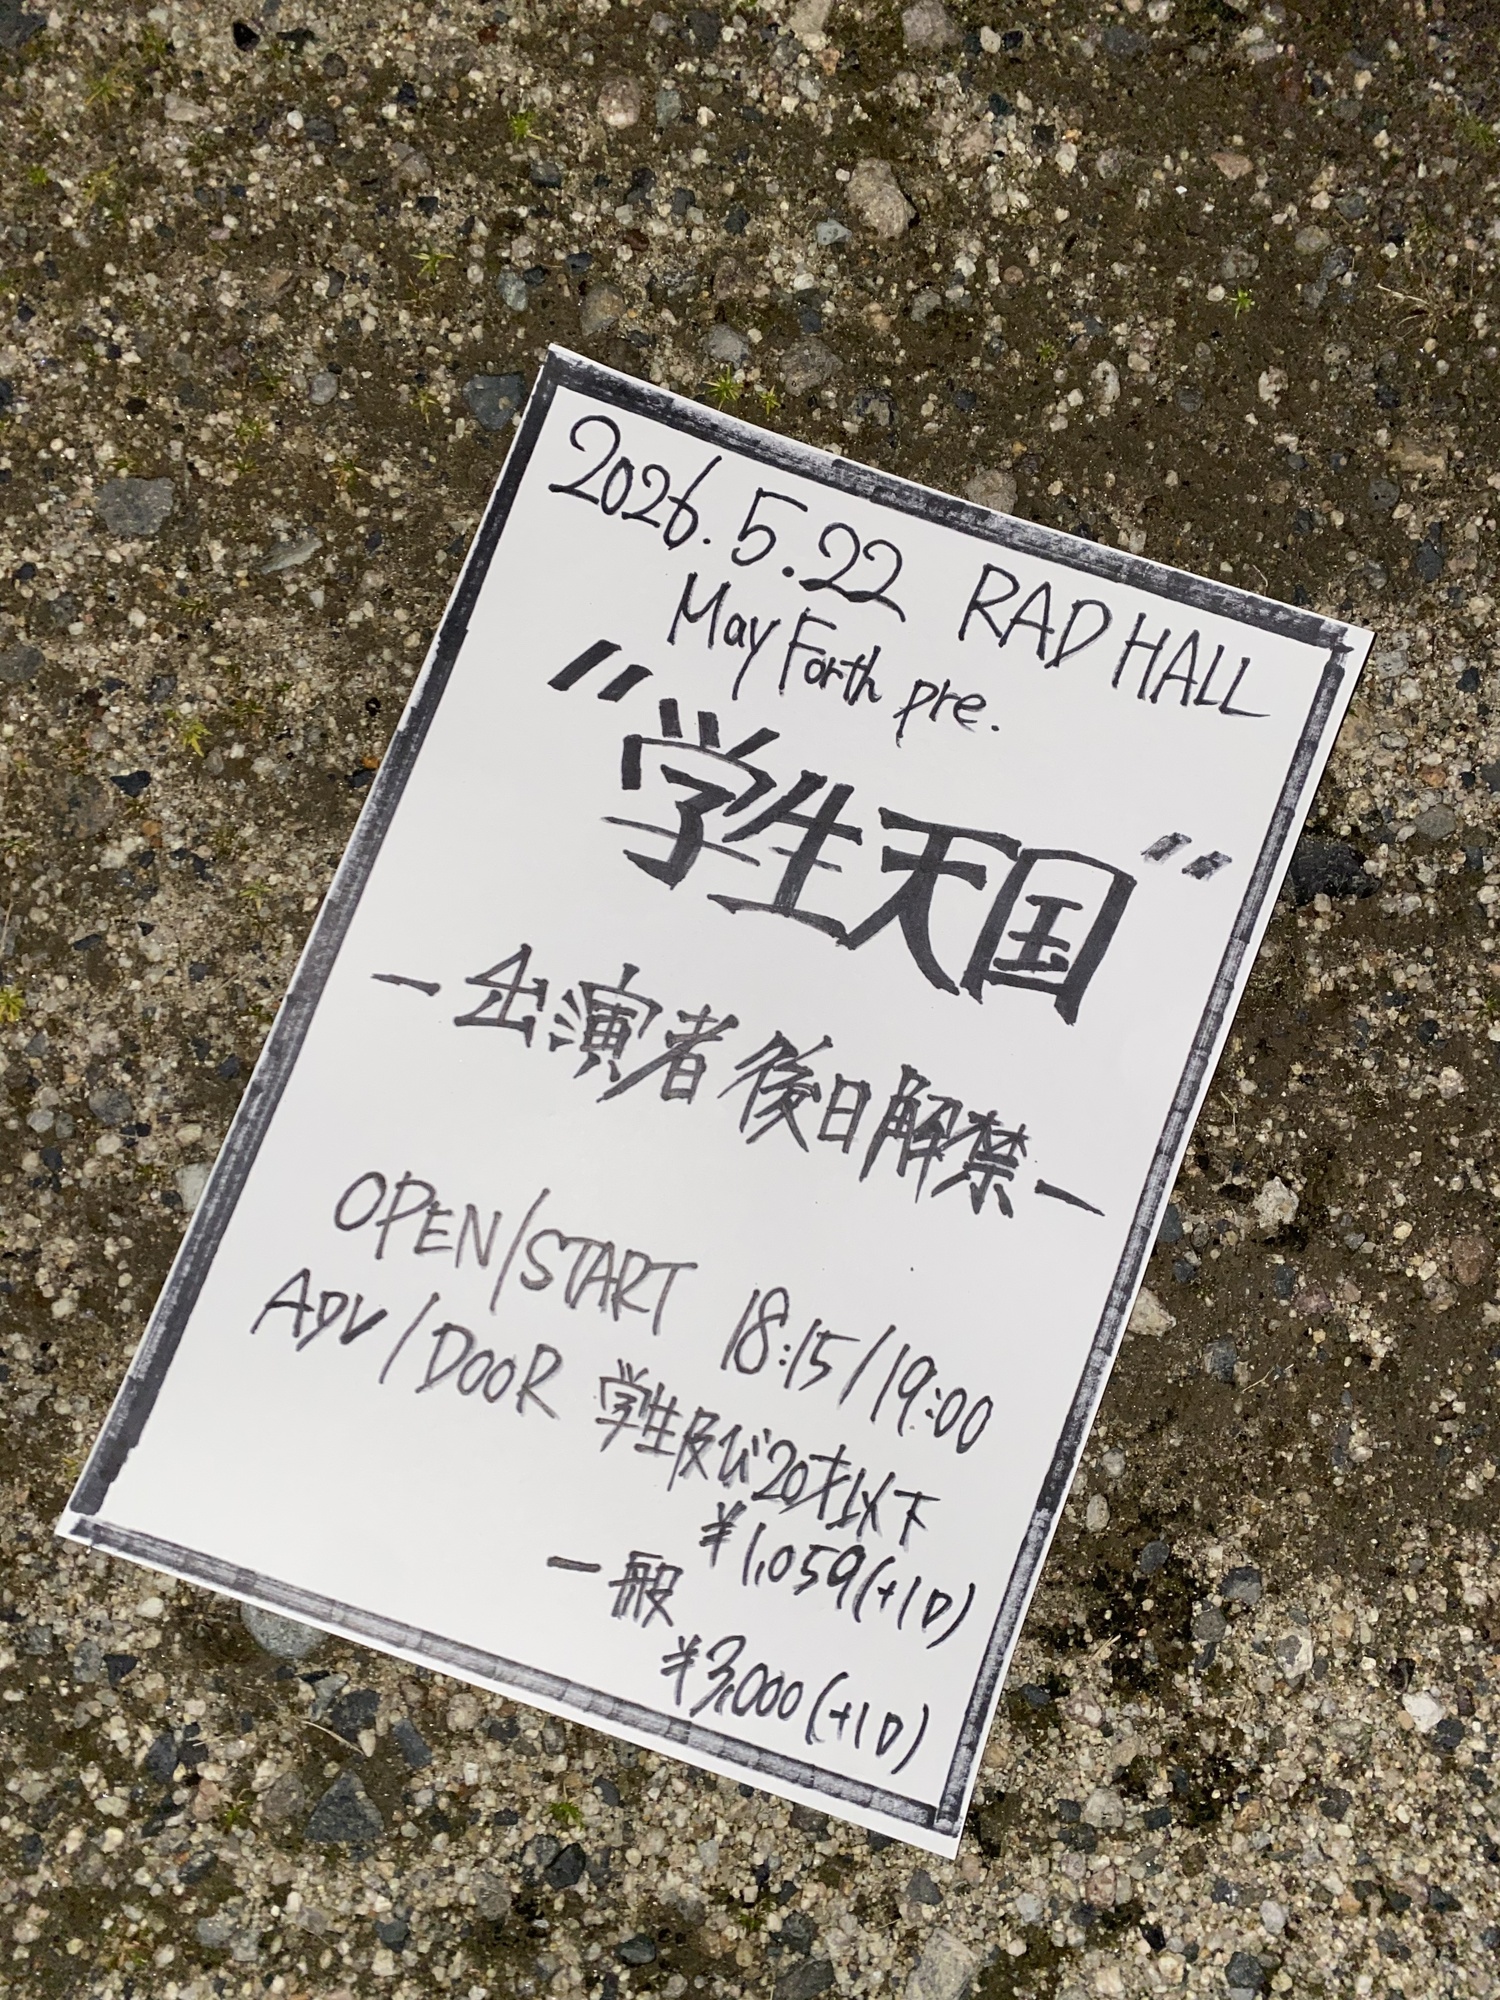 2026.5.22 RAD HALL
May Forth pre.
"学生天国"
－出演者後日解禁－
OPEN/START 18:15/19:00
ADV/DOOR 学生及び20才以下
¥1,059(+1D)
一般
¥3,000(+1D)